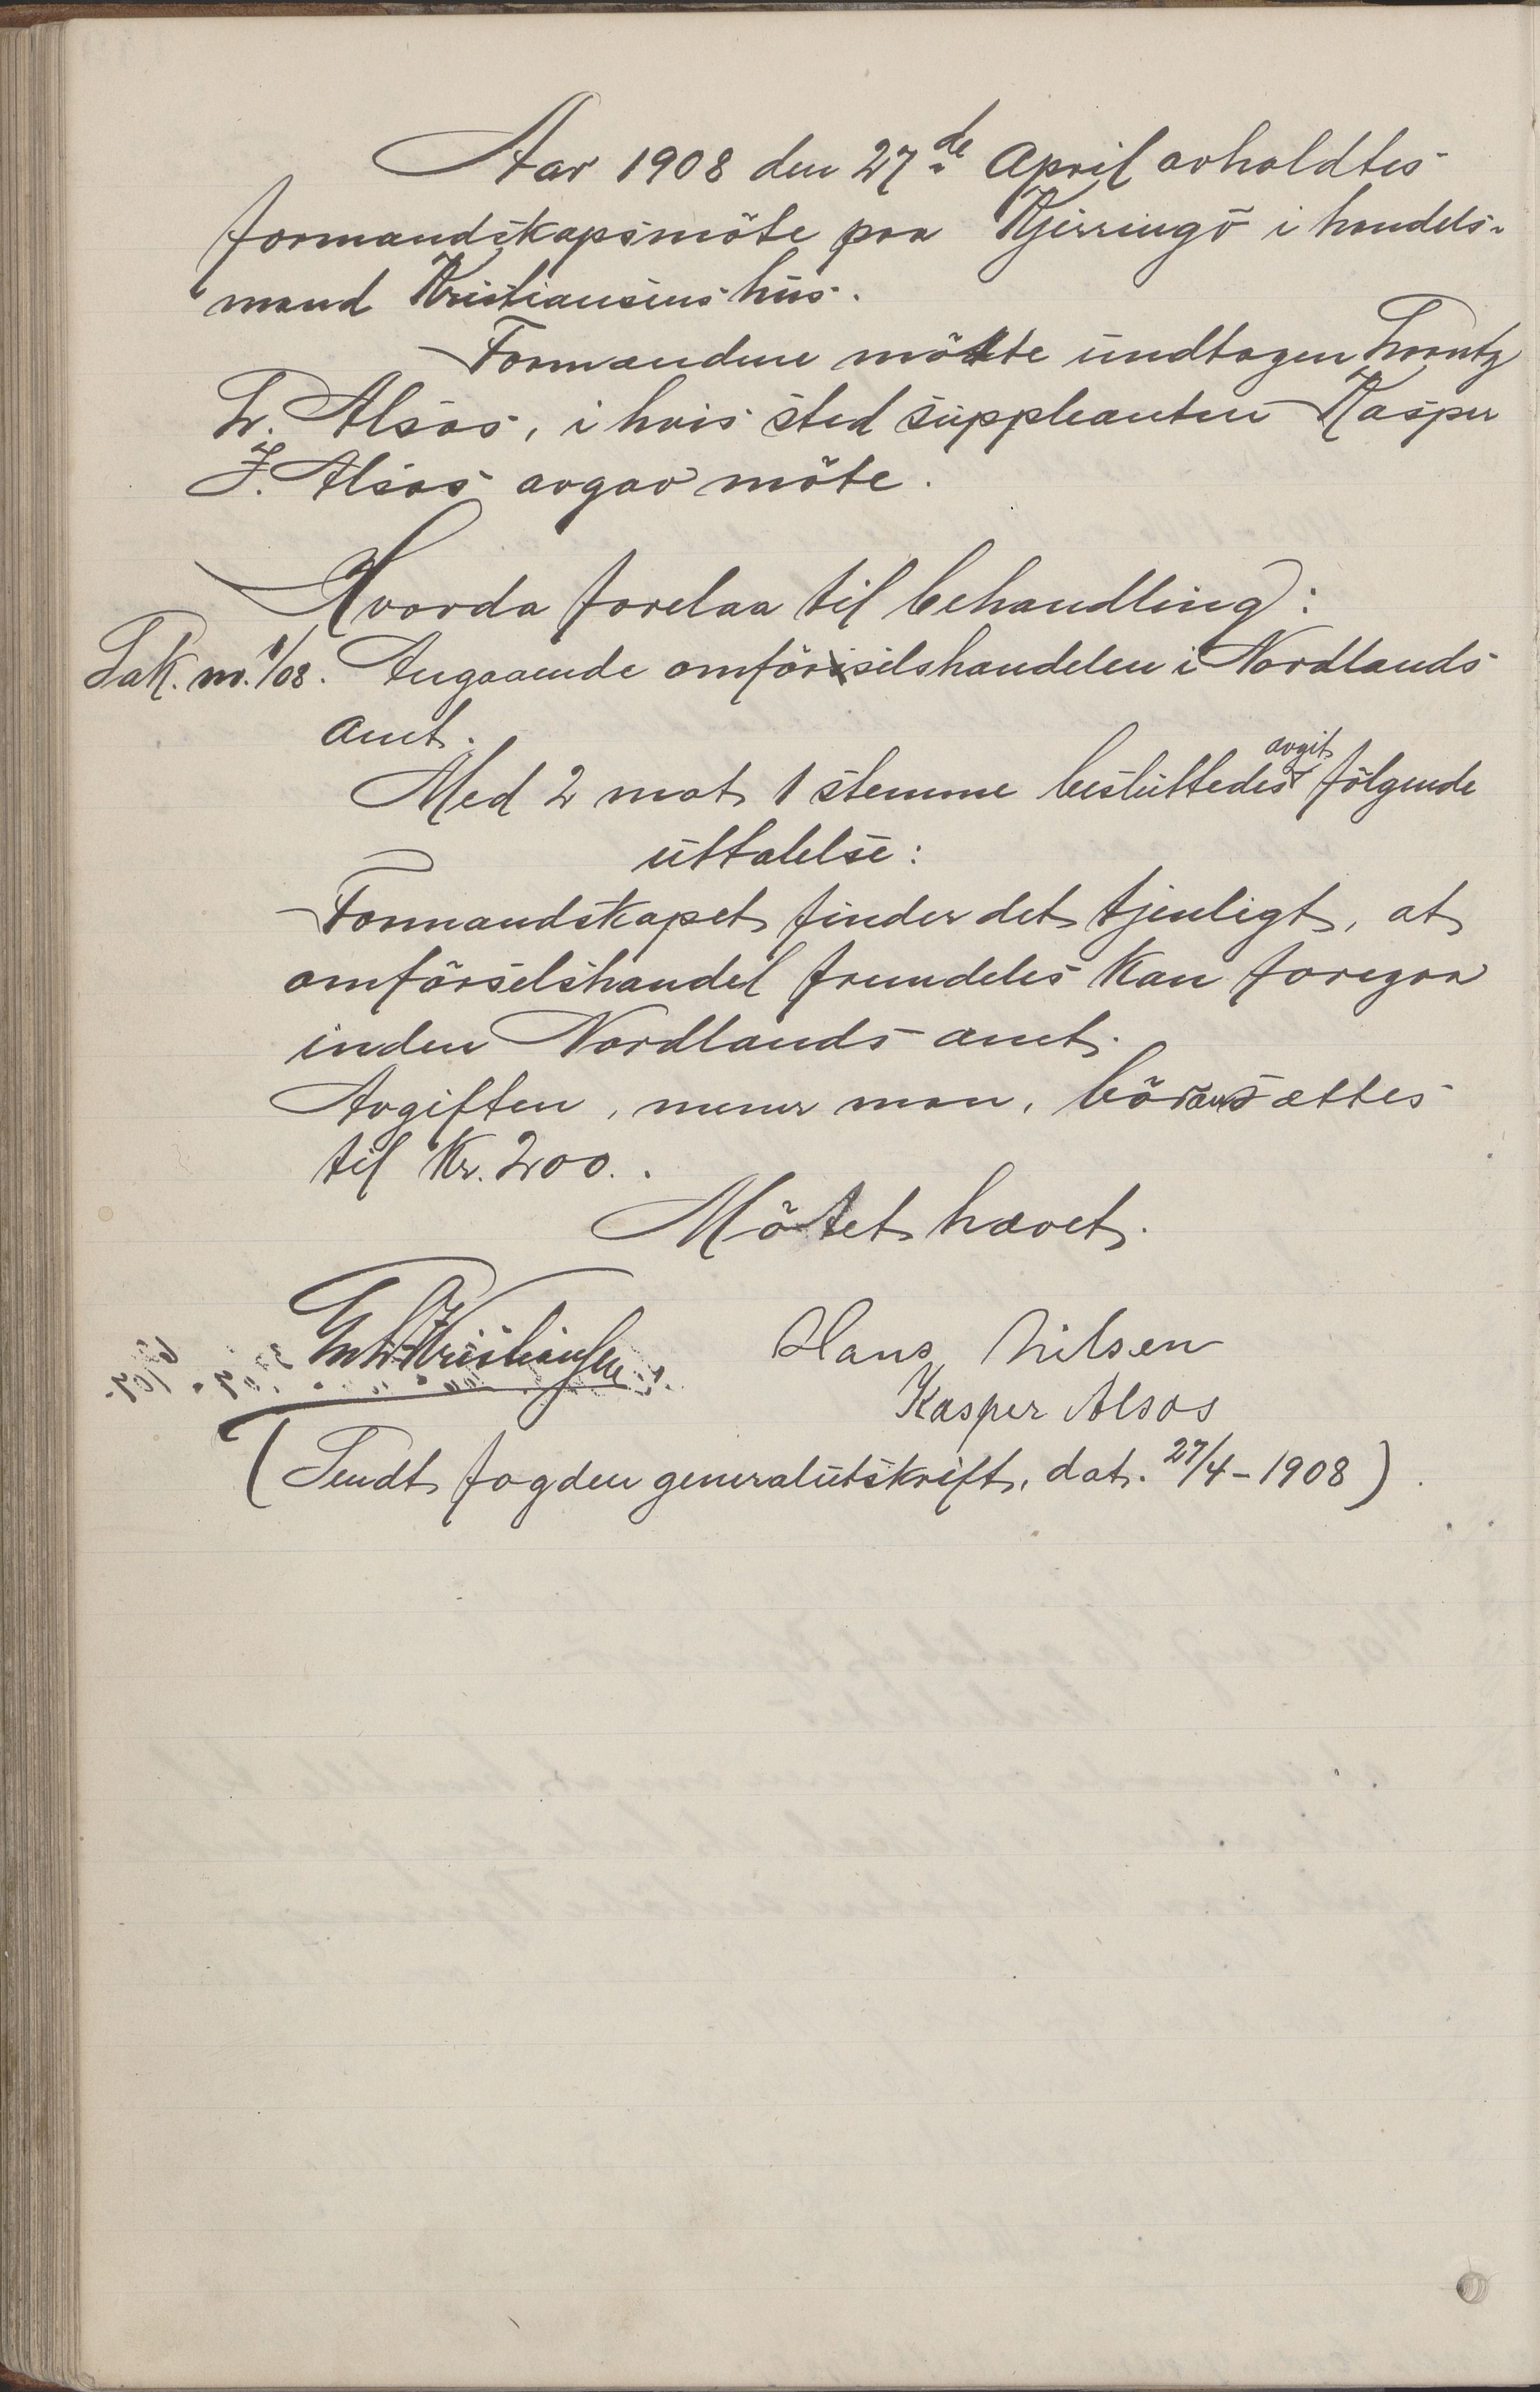 Aar 1908 den 27de April avholdtes
formandskapsmöte paa Kjerringö i handels-
mand Kristiansens hus.
Formændene mötte undtagen Lorentz
L. Alsos, i hvis sted suppleanten Kasper
J. Alsos avgav möte.
Hvorda forelaa til behandling:
Sak. nr. 1/08. Angaaende omförselshandelen i Nordlands
amt.
Med 2 mot 1 stemme besluttedes avgit følgende
uttalelse:
Formandskapet finder det tjenligt, at
omförselshandel fremdeles kan foregaa
inden Nordlands amt.
Avgiften, mener man, bör ansættes
til Kr. 200..
Mötet hævet.
Chr. Kristiansen Hans Nilsen
Kasper Alsos
(Sendt fogden generalutskrift, dat. 27/4-1908).